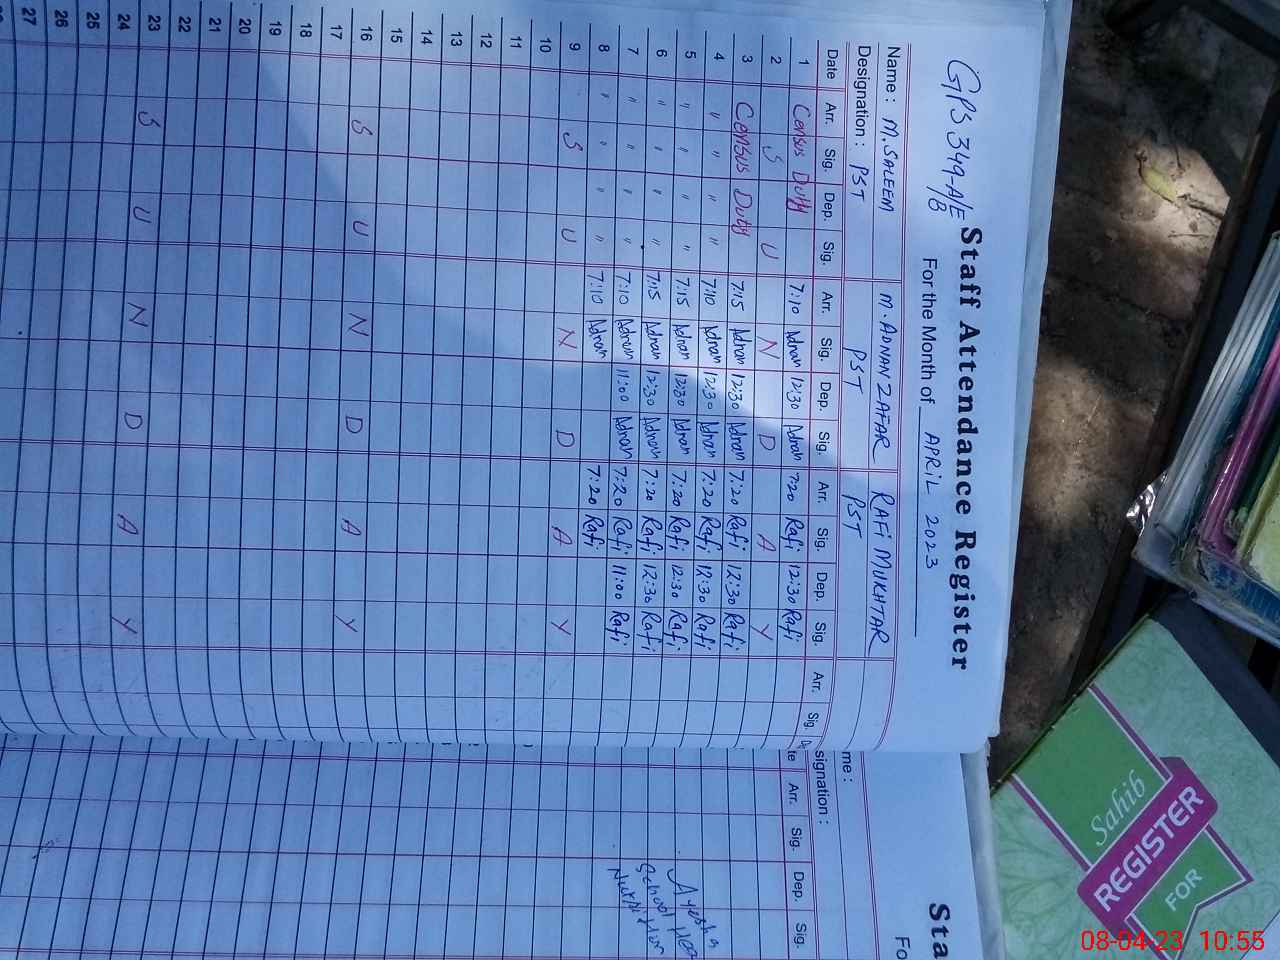 GPS 349-A/EB
Staff Attendance Register
For the Month of APRIL 2023
Name : M. SALEEM M. ADNAN ZAFAR RAFI MUKHTAR
Designation : PST PST PST
Date Arr. Sig. Dep. Sig. Arr. Sig. Dep. Sig. Arr. Sig. Dep. Sig. Arr. Sig.
1 Census Duty 7:10 Adnan 12:30 Adnan 7:20 Rafi 12:30 Rafi
2 S U N D A Y
3 Census Duty 7:15 Adnan 12:30 Adnan 7:20 Rafi 12:30 Rafi
4 " " " " 7:10 Adnan 12:30 Adnan 7:20 Rafi 12:30 Rafi
5 " " " " 7:15 Adnan 12:30 Adnan 7:20 Rafi 12:30 Rafi
6 " " " " 7:15 Adnan 12:30 Adnan 7:20 Rafi 12:30 Rafi
7 " " " " 7:10 Adnan 11:00 Adnan 7:20 Rafi 11:00 Rafi
8 " " " " 7:10 Adnan 7:20 Rafi
9 S U N D A Y
10
11
12
13
14
15
16 S U N D A Y
17
18
19
20
21
22
23 S U N D A Y
24
25
26
27
Sta
Fo
me :
signation :
te Arr. Sig. Dep. Sig.
Ayesha
School
Nutrition
Sahib
REGISTER
FOR
08-04-23 10:55